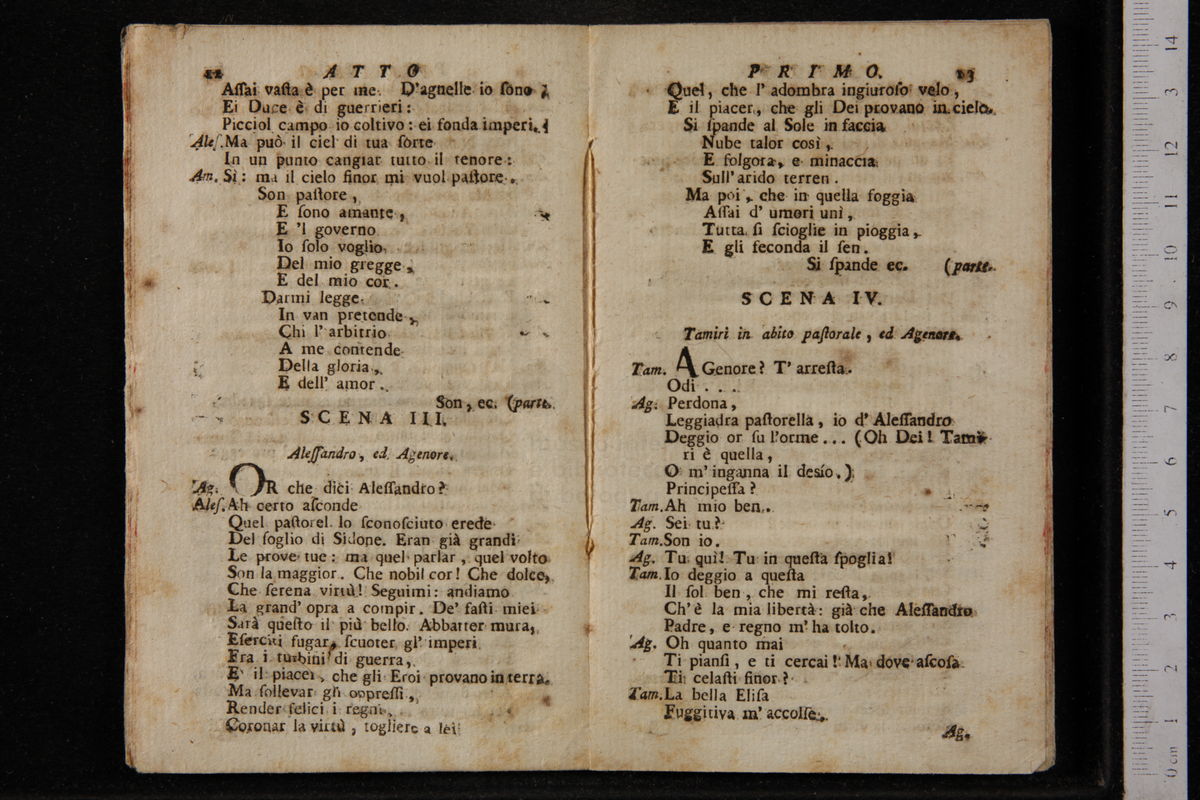 12 ATTO
Aſſai vaſta è per me. D'agnelle io ſono;
Ei Duce è di guerrieri:
Picciol campo io coltivo: ei fonda imperi.
Aleſ. Ma può il ciel di tua ſorte
In un punto cangiar tutto il tenore:
Am. Sì: ma il cielo finor mi vuol paſtore.
Son paſtore,
E ſono amante,
E 'l governo
Io ſolo voglio
Del mio gregge,
E del mio cor.
Darmi legge
In van pretende,
Chi l' arbitrio
A me contende
Della gloria,
E dell' amor.
Son, ec. (parte.
SCENA III.
Aleſſandro, ed Agenore.
Ag. OR che dici Aleſſandro?
Aleſ. Ah certo aſconde
Quel paſtorel lo ſconoſciuto erede
Del ſoglio di Sidone. Eran già grandi
Le prove tue: ma quel parlar, quel volto
Son la maggior. Che nobil cor! Che dolce,
Che ſerena virtù! Seguimi: andiamo
La grand' opra a compir. De' faſti miei
Sarà queſto il più bello. Abbatter mura,
Eſerciti fugar, ſcuoter gl' imperi
Fra i turbini di guerra,
E' il piacer, che gli Eroi provano in terra.
Ma ſollevar gli oppreſſi,
Render felici i regni,
Coronar la virtù, togliere a lei
PRIMO. 13
Quel, che l' adombra ingiurioſo velo,
E il piacer, che gli Dei provano in cielo.
Si ſpande al Sole in faccia
Nube talor così,
E folgora, e minaccia
Sull' arido terren.
Ma poi, che in quella foggia
Aſſai d' umori unì,
Tutta ſi ſcioglie in pioggia,
E gli feconda il ſen.
Si ſpande ec. (parte.
SCENA IV.
Tamiri in abito paſtorale, ed Agenore.
Tam. AGenore? T' arreſta.
Odi ...
Ag. Perdona,
Leggiadra paſtorella, io d' Aleſſandro
Deggio or ſu l'orme... (Oh Dei! Tami-
ri è quella,
O m' inganna il desío.)
Principeſſa?
Tam. Ah mio ben.
Ag. Sei tu?
Tam. Son io.
Ag. Tu quì! Tu in queſta ſpoglia!
Tam. Io deggio a queſta
Il ſol ben, che mi reſta,
Ch' è la mia libertà: già che Aleſſandro
Padre, e regno m' ha tolto.
Ag. Oh quanto mai
Ti pianſi, e ti cercai! Ma dove aſcoſa
Ti celaſti finor?
Tam. La bella Eliſa
Fuggitiva m' accolſe.
Ag.